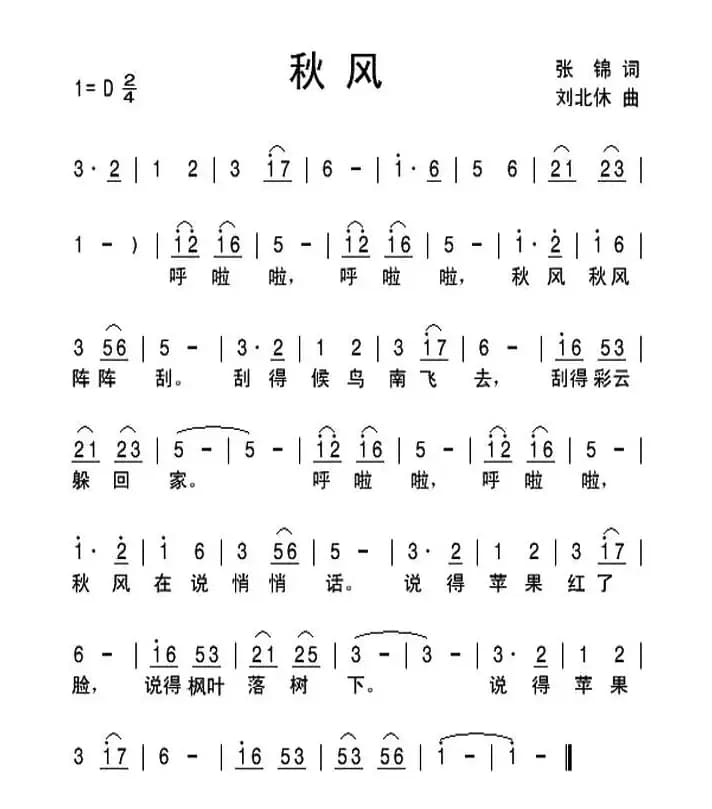 秋风
张 锦 词
1=D 2/4
刘北休 曲
3· 2 | 1 2 | 3 i7 | 6 - | i· 6 | 5 6 | 21 23 |
1 - ) | i2̇ i6 | 5 - | i2̇ i6 | 5 - | i· 2̇ | i 6 |
呼 啦 啦, 呼 啦 啦, 秋 风 秋风
3 56 | 5 - | 3· 2 | 1 2 | 3 i7 | 6 - | i6 53 |
阵阵 刮。 刮 得 候 鸟 南 飞 去, 刮得彩云
21 23 | 5 - | 5 - | i2̇ i6 | 5 - | i2̇ i6 | 5 - |
躲 回 家。 呼 啦 啦, 呼 啦 啦,
i· 2̇ | i 6 | 3 56 | 5 - | 3· 2 | 1 2 | 3 i7 |
秋 风 在 说 悄 悄 话。 说 得 苹 果 红了
6 - | i6 53 | 21 25 | 3 - | 3 - | 3· 2 | 1 2 |
脸, 说得枫叶 落 树 下。 说 得 苹 果
3 i7 | 6 - | i6 53 | 53 56 | i - | i - ‖